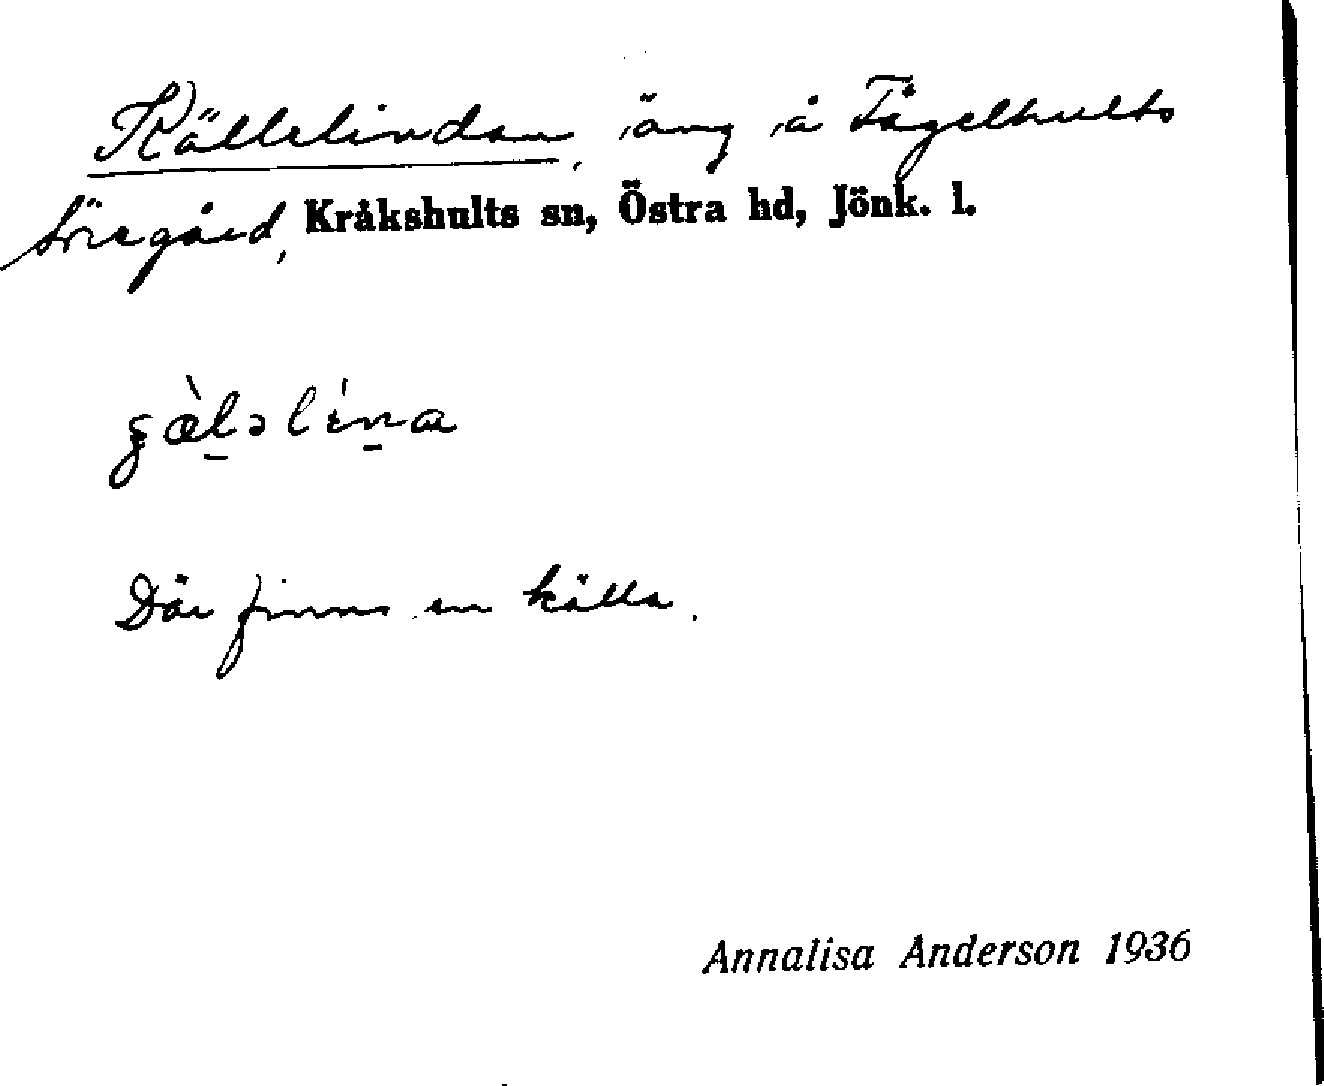 Källelindan, äng å Fågelhults
Söregård, Kråkshults sn, Östra hd, Jönk. l.
Där finns en källa.
Annalisa Anderson 1936